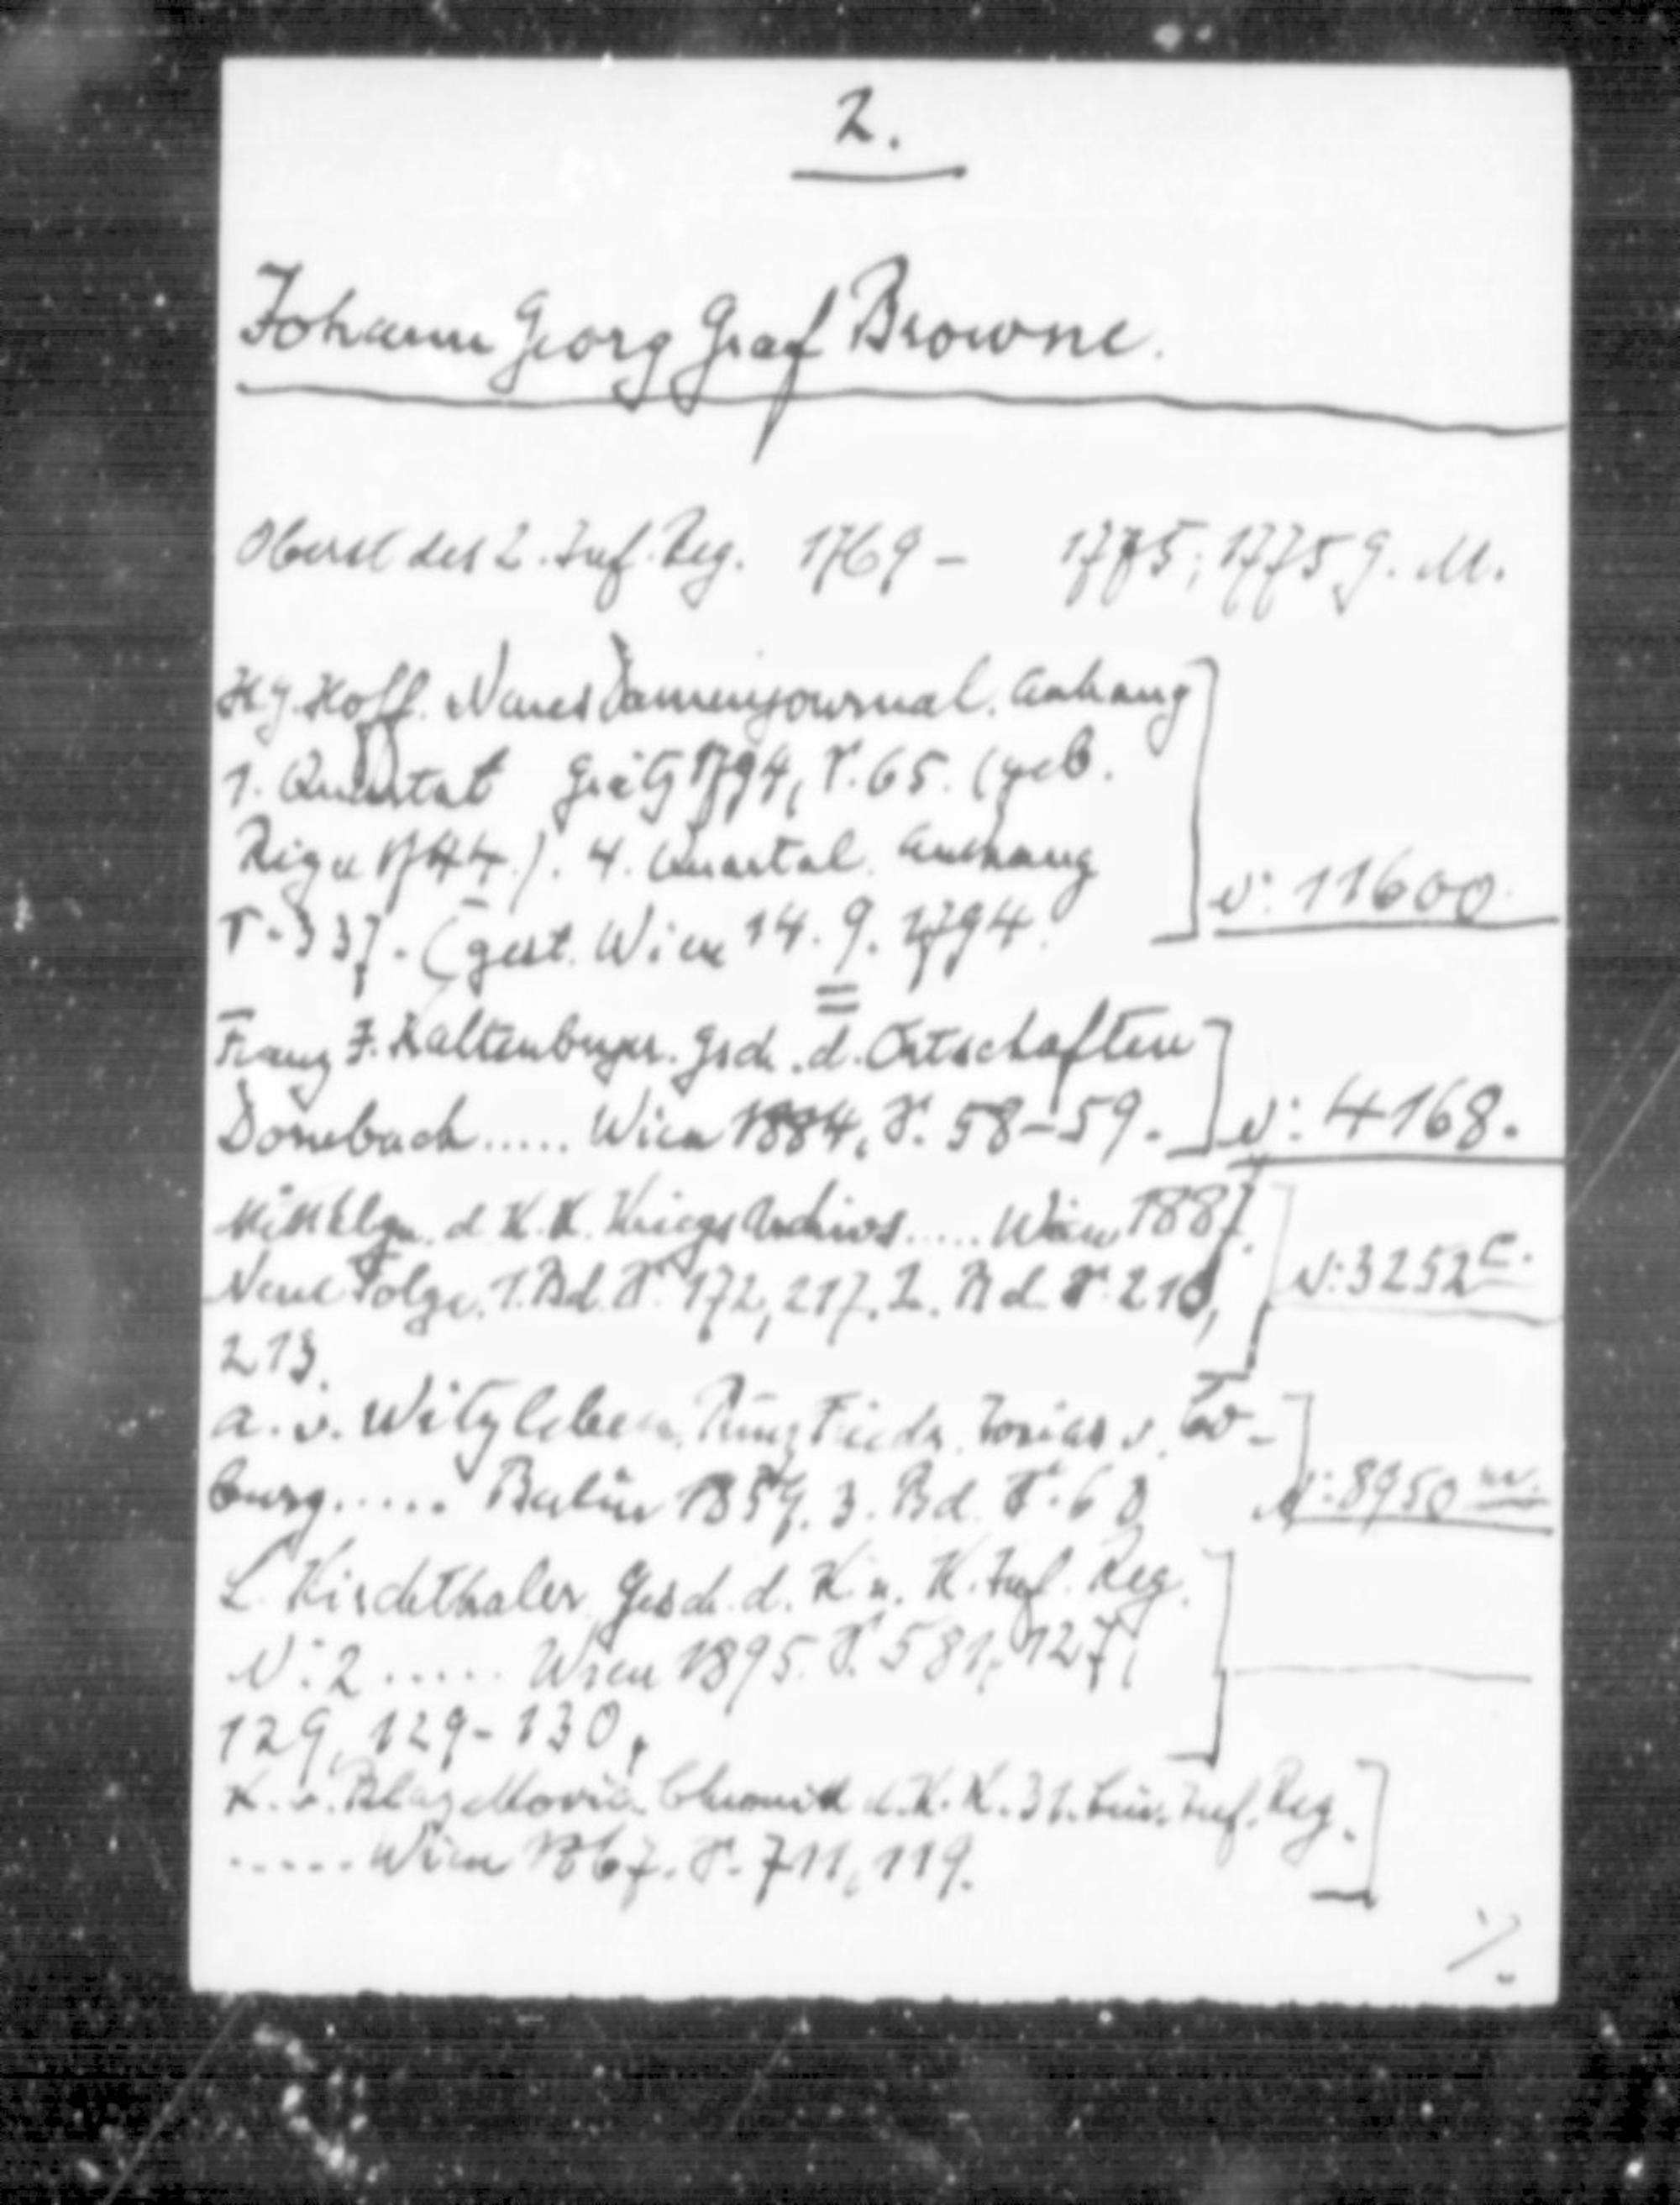 2.
Johann Georg Graf Browne.
Oberst des 2. Inf. Reg. 1769 – 1775; 1775 G. M.
H. G. Hoff. Neues Damenjournal. Anhang
1. Quartal Grätz 1794, S. 65. (geb.
Riga 1744.). 4. Quartal. Anhang
S. 337. (gest. Wien 14. 9. 1794.
N: 11600
Franz J. Kaltenbrunner. Gsch. d. Ortschaften
Dornbach ..... Wien 1884, S. 58–59.
N: 4168.
Mitthlgn. d. K. K. Kriegs Archivs ..... Wien 1887.
Neue Folge. 1. Bd. S. 172, 217. 2. Bd. S. 210,
213.
N: 3252 c.
A. v. Witzleben, Prinz Friedr. Josias v. Co-
burg ..... Berlin 1859. 3. Bd. S. 68
N: 8950 m.
L. Kirchthaler Gesch. d. K. u. K. Inf. Reg.
N: 2 ..... Wien 1895. S. 581, 127,
129, 129-130,
K. v. Blazekovic. Chronik d. K. K. 31. Lin. Inf. Reg.
..... Wien 1867. S. 711, 119.
./.